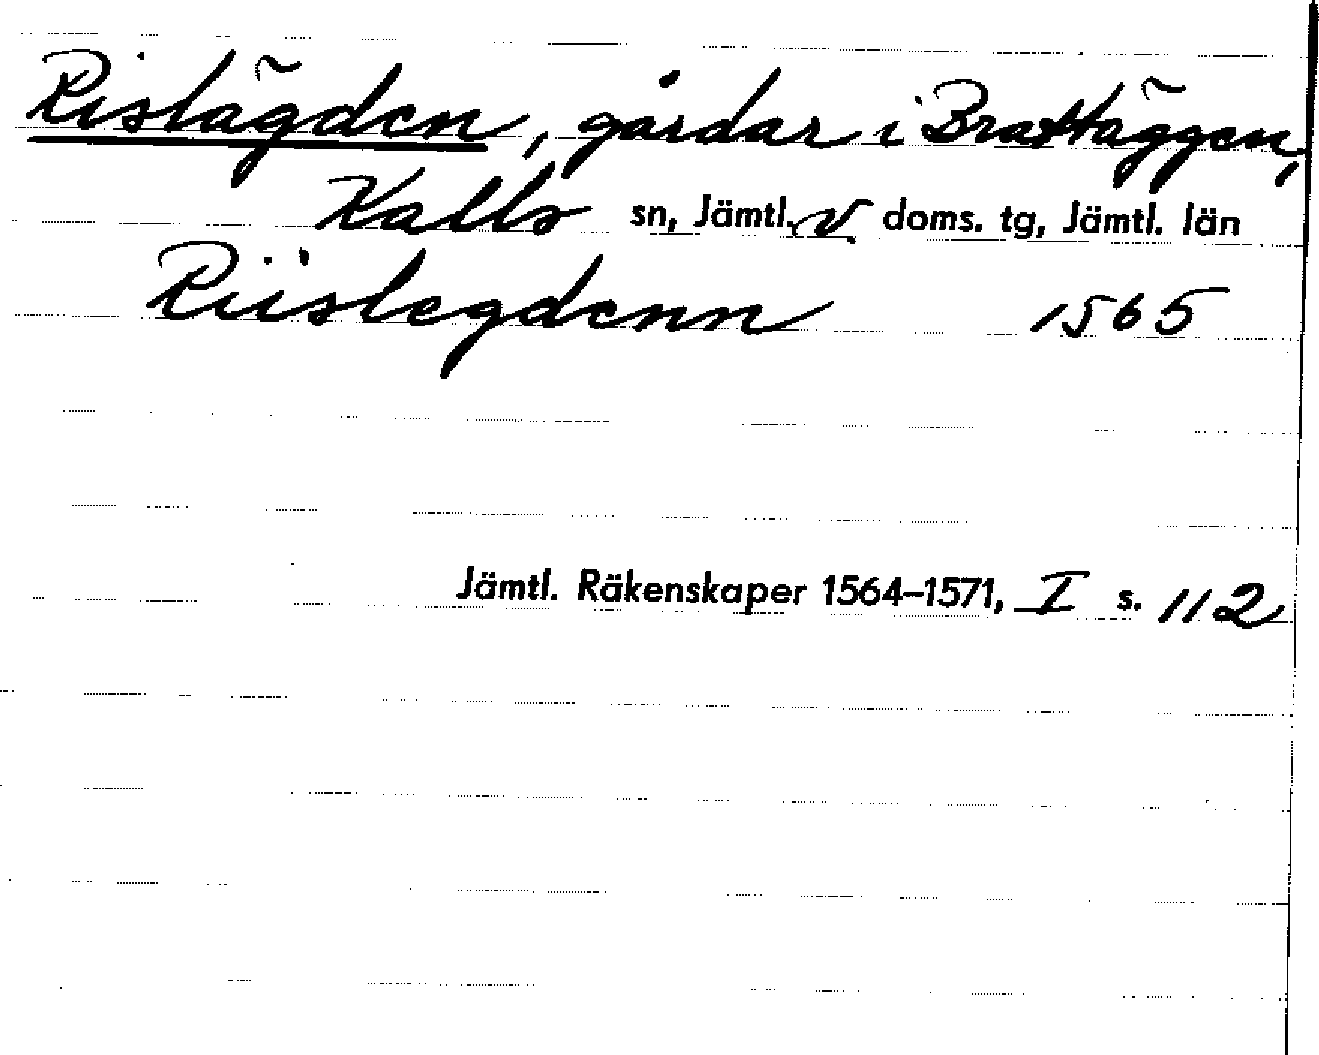 Rislägden, gårdar i Brattäggen,
Kalls sn, Jämtl. v doms. tg, Jämtl. län
Riislegdenn 1565
Jämtl. Räkenskaper 1564–1571, I s. 112